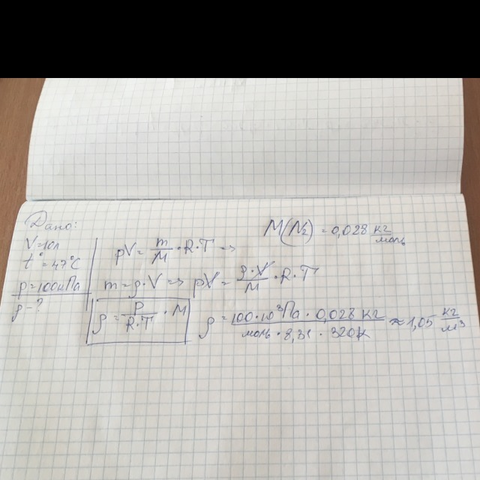 Дано:
V=10л
t°=47°C
p=100кПа
ρ-?
pV=m/M·R·T→
M(N₂)=0,028 кг/моль
m=ρ·V⇒pV=ρ·V/M·R·T
ρ=p/R·T·M
ρ=100·10³Па·0,028кг/моль·8,31·320К≈1,05 кг/м³